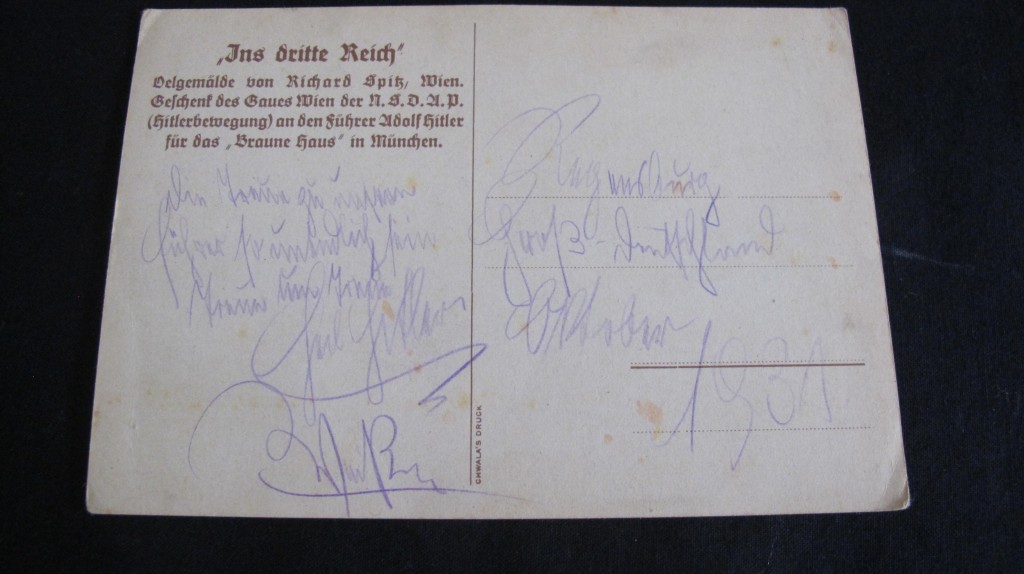 „Ins dritte Reich“
Oelgemälde von Richard Spitz, Wien.
Geschenk des Gaues Wien der N.S.D.A.P.
(Hitlerbewegung) an den Führer Adolf Hitler
für das „Braune Haus“ in München.
Die Treue zu unserem
Führer
Treue um Treue
Heil Hitler
CHWALA'S DRUCK
Regensburg
Groß-Deutschland
Oktober
1931